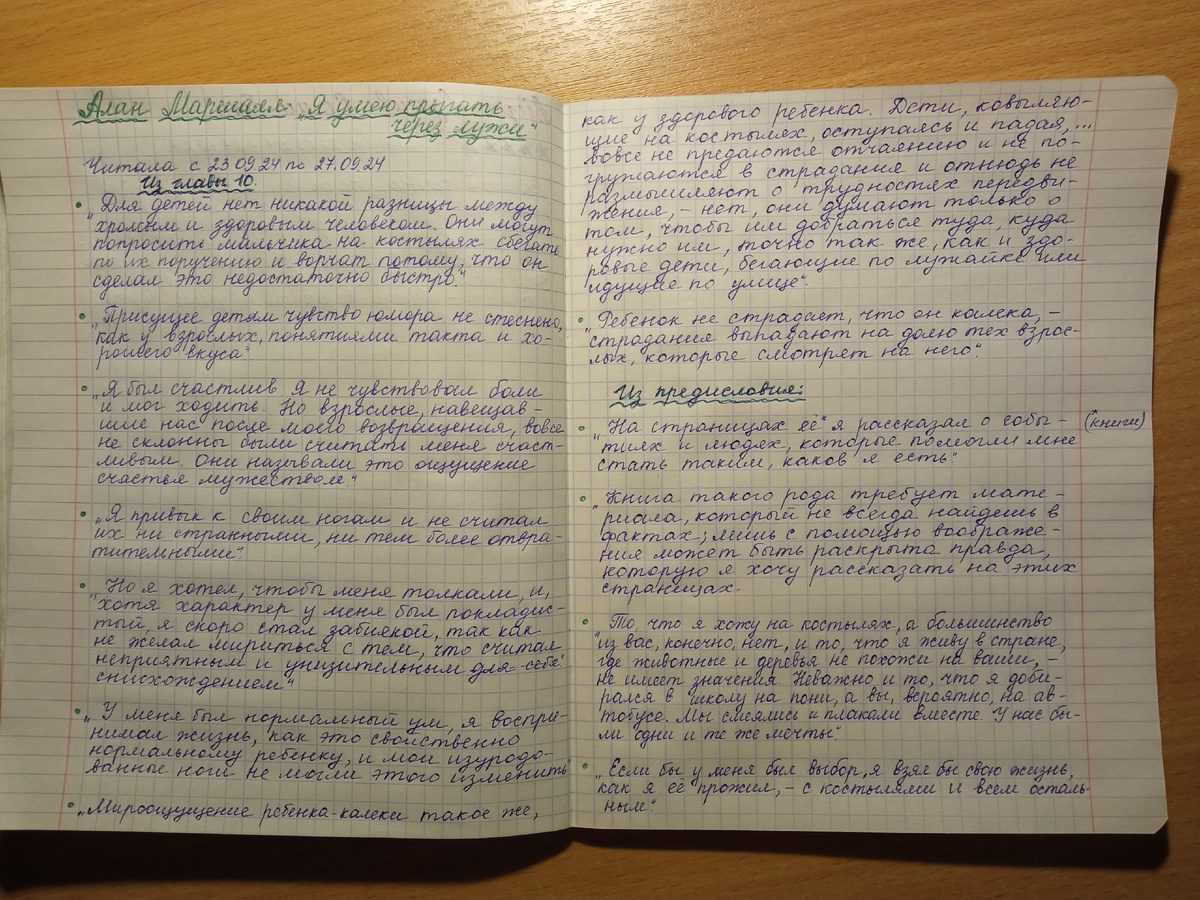 Алан Маршалл „Я умею прыгать
через лужи“
Читала с 23.09.24 по 27.09.24
Из главы 10.
• „Для детей нет никакой разницы между
хромым и здоровым человеком. Они могут
попросить мальчика на костылях сбегать
по их поручению и ворчат потому, что он
сделал это недостаточно быстро.“
• „Присущее детям чувство юмора не стеснено,
как у взрослых, понятиями такта и хо-
рошего вкуса“
• „Я был счастлив. Я не чувствовал боли
и мог ходить. Но взрослые, навещав-
шие нас после моего возвращения, вовсе
не склонны были считать меня счаст-
ливым. Они называли это ощущение
счастья мужеством.“
• „Я привык к своим ногам и не считал
их ни странными, ни тем более отвра-
тительными“.
• „Но я хотел, чтобы меня толкали, и,
хотя характер у меня был покладис-
тый, я скоро стал забиякой, так как
не желал мириться с тем, что считал
неприятным и унизительным для себя
снисхождением“
• „У меня был нормальный ум, я воспри-
нимал жизнь, как это свойственно
нормальному ребенку, и мои изуродо-
ванные ноги не могли этого изменить
• „Мироощущение ребенка-калеки такое же,
как у здорового ребенка. Дети, ковыляю-
щие на костылях, оступаясь и падая, ...
вовсе не предаются отчаянию и не по-
гружаются в страдания и отнюдь не
размышляют о трудностях передви-
жения, – нет, они думают только о
том, чтобы им добраться туда, куда
нужно им, точно так же, как и здо-
ровые дети, бегающие по лужайке или
идущие по улице“.
• „Ребенок не страдает, что он калека, –
страдания выпадают на долю тех взрос-
лых, которые смотрят на него“.
Из предисловия:
• „На страницах её* я рассказал о собы- (*книги)
тиях и людях, которые помогли мне
стать таким, каков я есть“.
• „Книга такого рода требует мате-
риала, который не всегда найдешь в
фактах; лишь с помощью воображе-
ния может быть раскрыта правда,
которую я хочу рассказать на этих
страницах.
• „То, что я хожу на костылях, а большинство
из вас, конечно, нет, и то, что я живу в стране,
где животные и деревья не похожи на ваши, –
не имеет значения. Неважно и то, что я доби-
рался в школу на пони, а вы, вероятно, на ав-
тобусе. Мы смеялись и плакали вместе. У нас бы-
ли одни и те же мечты“.
• „Если бы у меня был выбор, я взял бы свою жизнь,
как я её прожил, – с костылями и всем осталь-
ным“.